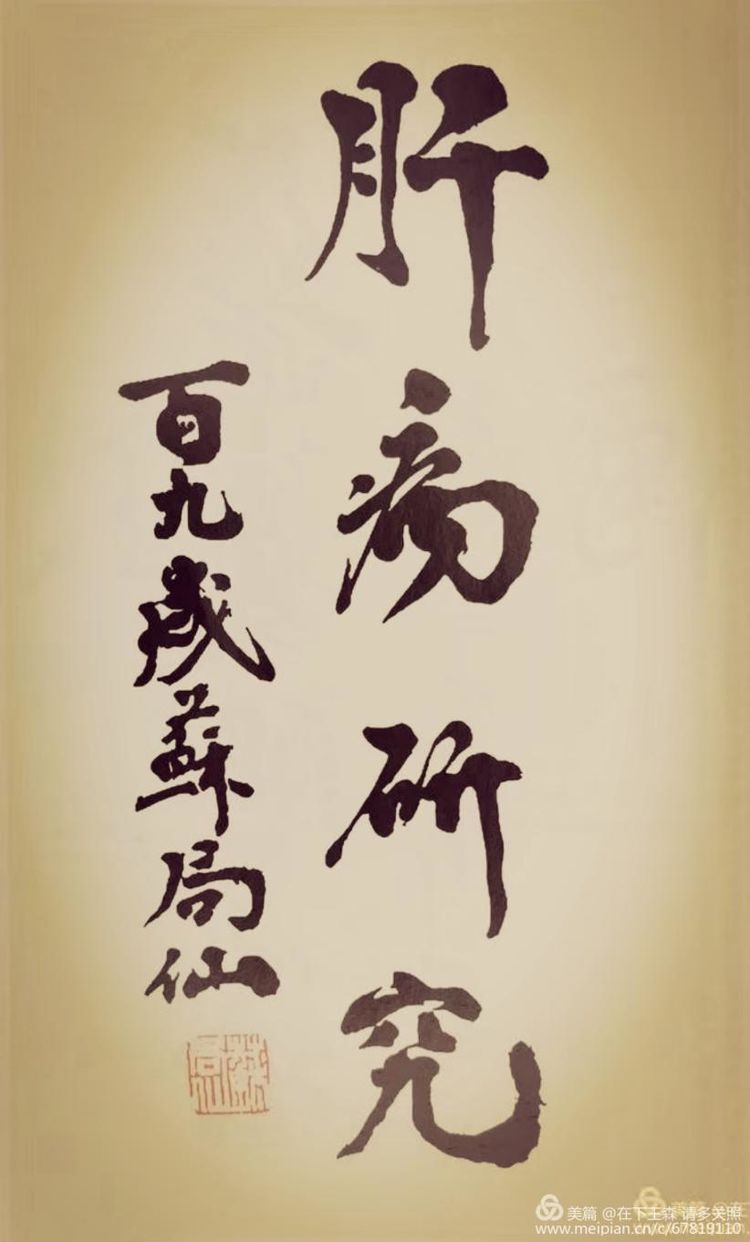 肝病研究
百九岁蘇局仙
蘇局仙
美篇 @在下王森 请多关照
www.meipian.cn/c/67819110
美篇 @在